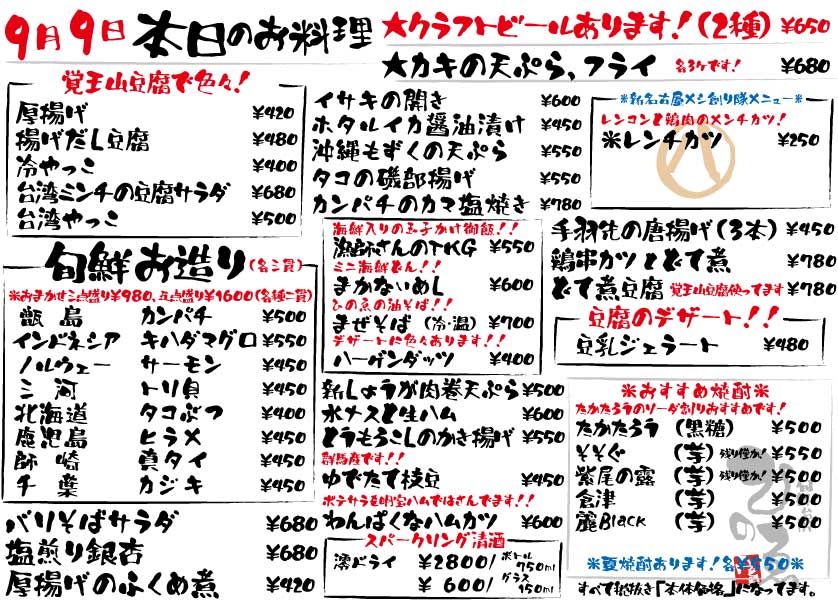 9月9日 本日のお料理
★クラフトビールあります!(2種) ¥650
★カキの天ぷら、フライ 各3ケです! ¥680
覚王山豆腐で色々!
厚揚げ ¥420
揚げだし豆腐 ¥480
冷やっこ ¥400
台湾ミンチの豆腐サラダ ¥680
台湾やっこ ¥500
旬鮮お造り(各三貫)
※おまかせ三点盛り¥980、五点盛り¥1600(各種二貫)
甑島 カンパチ ¥500
インドネシア キハダマグロ ¥550
ノルウェー サーモン ¥450
三河 トリ貝 ¥450
北海道 タコぶつ ¥400
鹿児島 ヒラメ ¥450
師崎 真タイ ¥450
千葉 カジキ ¥450
パリそばサラダ ¥680
塩煎り銀杏 ¥680
厚揚げのふくめ煮 ¥420
イサキの開き ¥600
ホタルイカ醤油漬け ¥450
沖縄もずくの天ぷら ¥550
タコの磯部揚げ ¥550
カンパチのカマ塩焼き ¥780
海鮮入りの玉子かけ御飯!!
漁師さんのTKG ¥550
ミニ海鮮どん!!
まかないめし ¥600
ひの魚の油そば!!
まぜそば (冷・温) ¥700
デザートに色々あります!!
ハーゲンダッツ ¥400
新しょうが肉巻天ぷら ¥500
水ナスと生ハム ¥600
とうもろこしのかき揚げ ¥550
群馬産です!!
ゆでたて枝豆 ¥450
ポテサラを明宝ハムではさんでます!!
わんぱくなハムカツ ¥600
スパークリング清酒
澪ドライ ¥2800/ボトル750ml
¥600/グラス150ml
※新名古屋メシ創り隊メニュー※
レンコンと鶏肉のメンチカツ!
※レンチカツ ¥250
手羽先の唐揚げ(3本) ¥450
鶏串カツとどて煮 ¥780
どて煮豆腐 覚王山豆腐使ってます ¥780
豆腐のデザート!!
豆乳ジェラート ¥480
※おすすめ焼酎※
たかたろうのソーダ割りおすすめです!
たかたろう (黒糖) ¥500
そそぐ (芋) 残り僅か! ¥550
紫尾の露 (芋) 残り僅か! ¥500
倉津 (芋) ¥500
麗Black (芋) ¥500
※夏焼酎あります!各¥550※
すべて税抜き「本体価格」になってます。